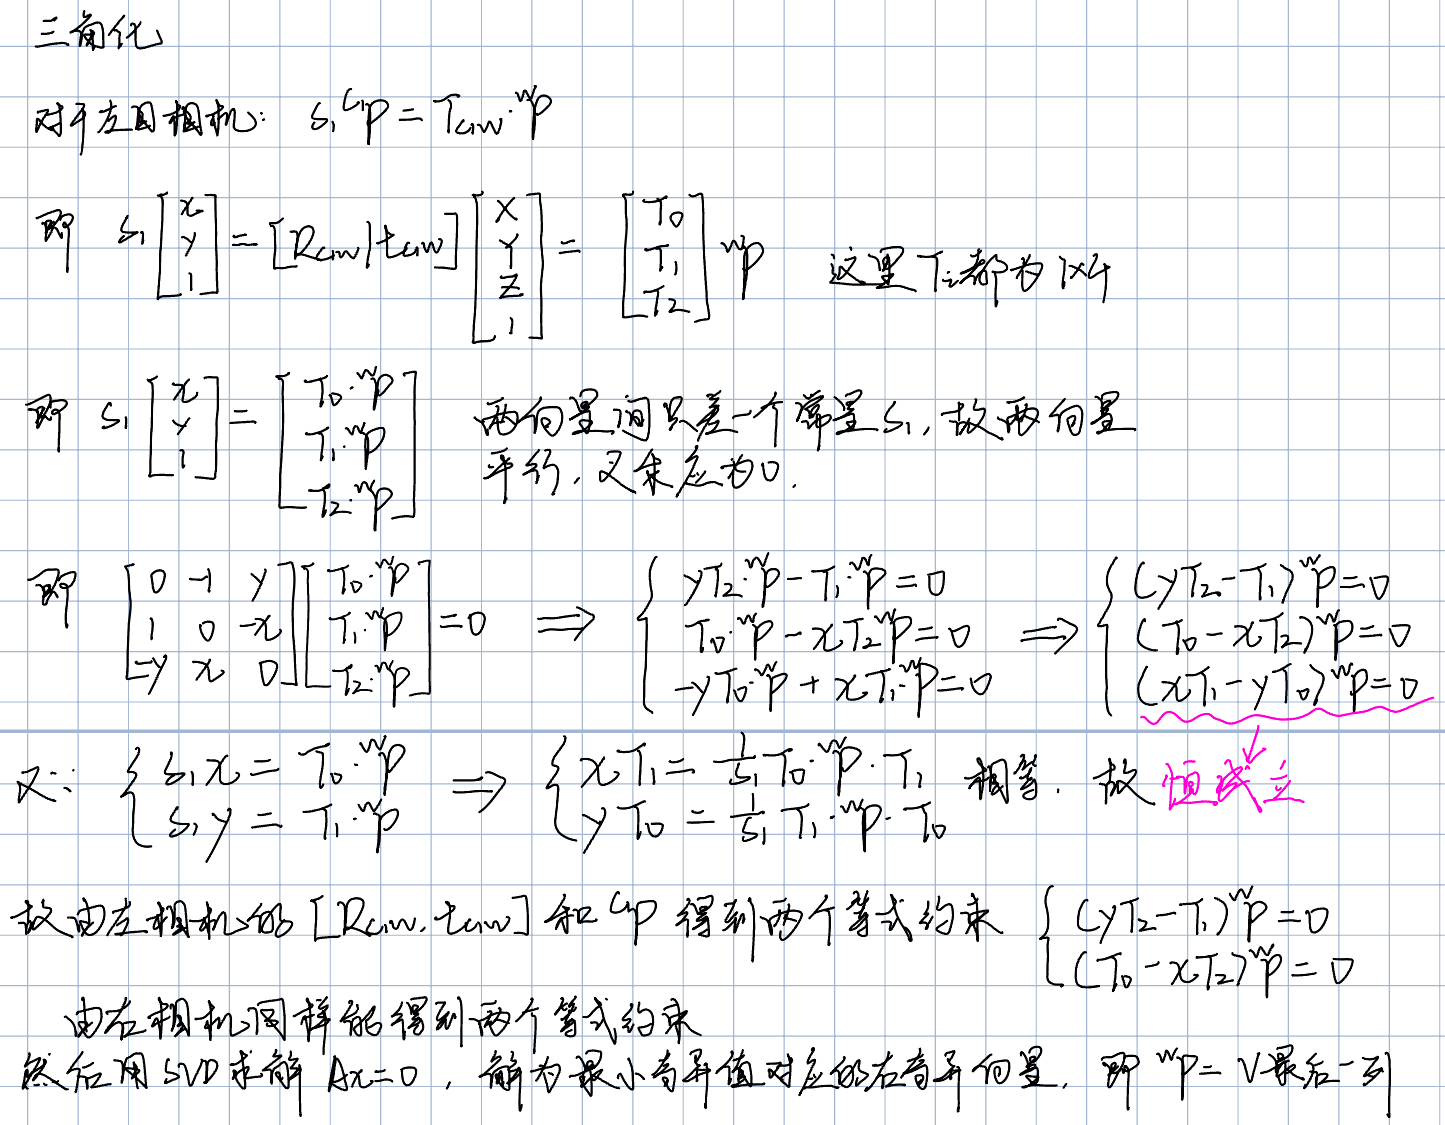 三角化
对于左目相机: s₁ ᶜ¹p = T_c₁w · ʷp
即 s₁ [x; y; 1] = [R_c₁w | t_c₁w] [X; Y; Z; 1] = [T₀; T₁; T₂] ʷp 这里 Tᵢ都为 1×4
即 s₁ [x; y; 1] = [T₀·ʷp; T₁·ʷp; T₂·ʷp] 两向量间只差一个常量s₁, 故两向量
平行, 叉乘应为0.
即 [0 -1 y; 1 0 -x; -y x 0] [T₀·ʷp; T₁·ʷp; T₂·ʷp] = 0 ⟹ { yT₂·ʷp - T₁·ʷp = 0; T₀·ʷp - xT₂ʷp = 0; -yT₀·ʷp + xT₁·ʷp = 0 ⟹ { (yT₂-T₁)ʷp = 0; (T₀-xT₂)ʷp = 0; (xT₁-yT₀)ʷp = 0
又∵ { s₁x = T₀·ʷp; s₁y = T₁·ʷp ⟹ { xT₁ = 1/s₁ T₀·ʷp·T₁; yT₀ = 1/s₁ T₁·ʷp·T₀ 相等. 故 恒成立
故由左相机的 [R_c₁w, t_c₁w] 和 ᶜ¹p 得到两个等式约束 { (yT₂-T₁)ʷp = 0; (T₀-xT₂)ʷp = 0
由右相机同样能得到两个等式约束
然后用SVD求解 Ax=0, 解为最小奇异值对应的右奇异向量, 即 ʷp = V最后一列